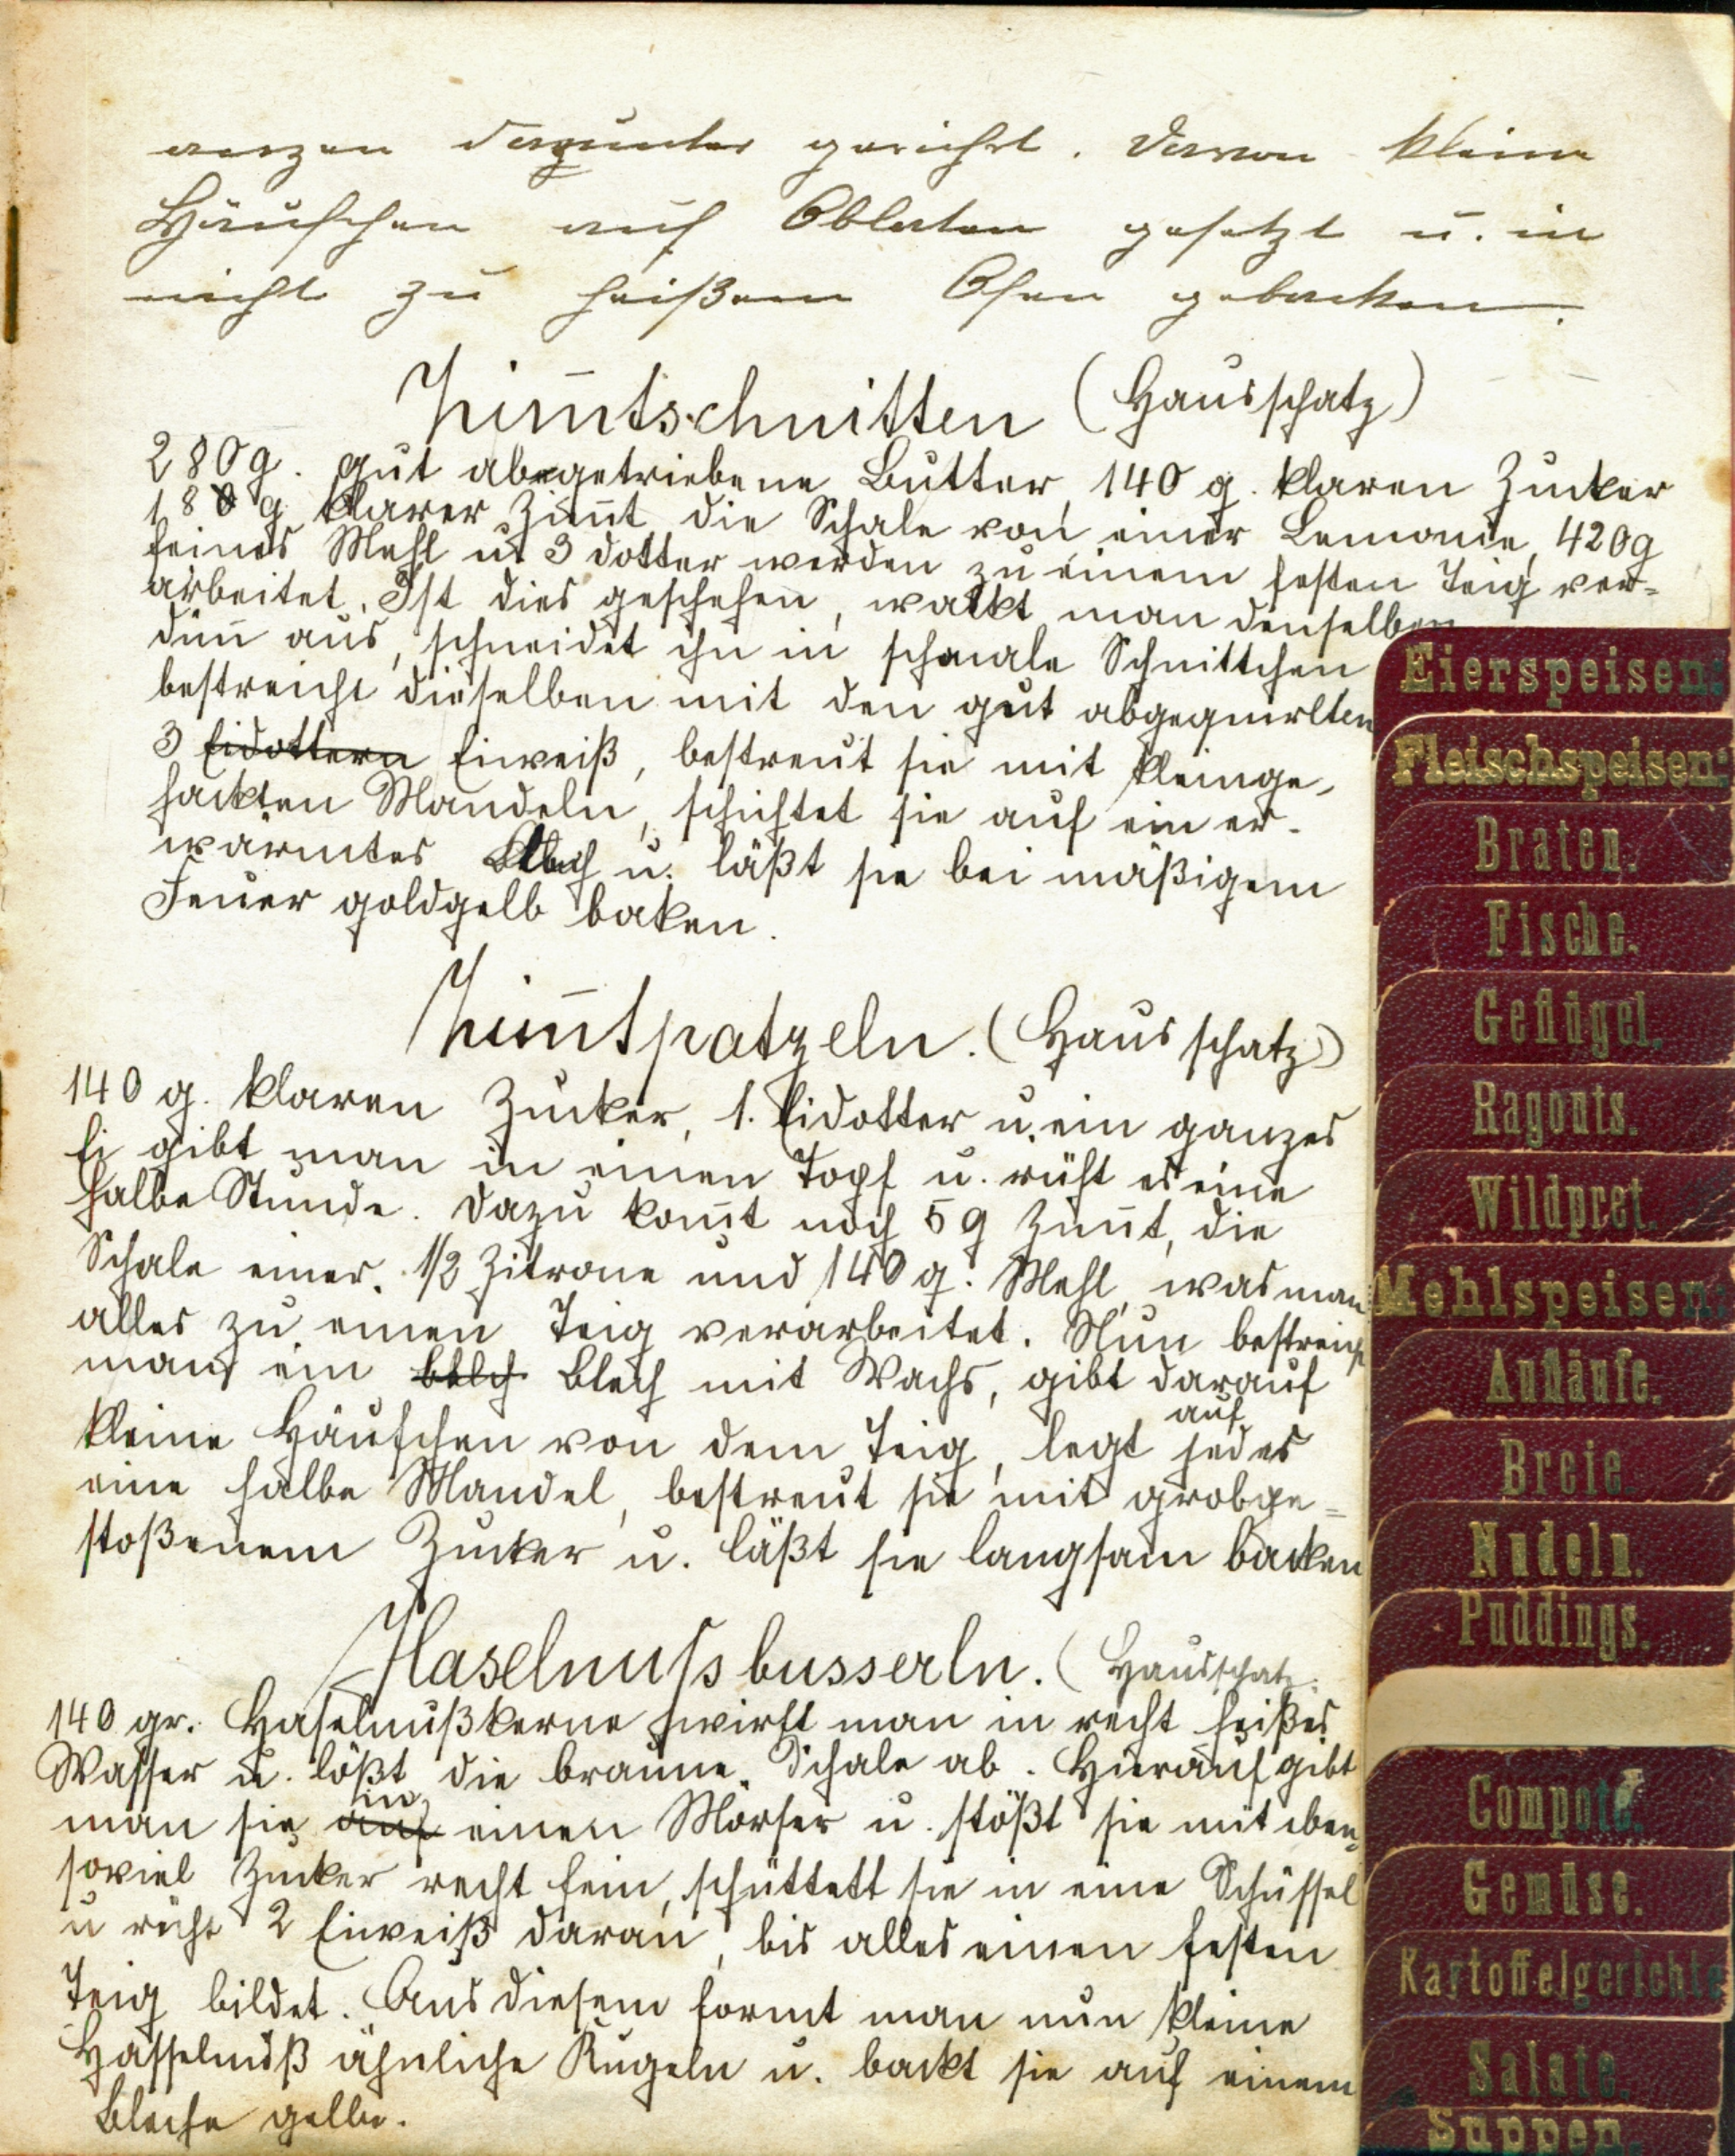 warzen darunter gerührt. Davon kleine
Häufchen auf Oblaten gesetzt u. in
nicht zu heißem Ofen gebacken.
Zim̄tschnitten (Hausschatz)
280g. gut abgetriebene Butter, 140 g. klaren Zucker
180 g klarer Zim̄t, die Schale von einer Lemonie, 420g
feines Mehl u 3 dotter werden zu einem festen Teig ver=
arbeitet. Ist dies geschehen, walkt man denselben
dün̄ aus, schneidet ihn in schmale Schnittchen
bestreicht dieselben mit den gut abgequirlten
3 Eidottern Eiweiß, bestreut sie mit kleinge-
hackten Mandeln, schichtet sie auf ein er-
wärmtes Blech u. läßt sie bei mäßigem
Feuer goldgelb baken.
Zim̄tpatzeln. (Hausschatz)
140 g. klaren Zucker, 1. Eidotter u. ein ganzes
Ei gibt man in einen Topf u. rüht es eine
halbe Stunde. Dazu kom̄t noch 5 g Zim̄t, die
Schale einer 1/2 Zitrone und 140 g. Mehl, was man
alles zu einen Teig verarbeitet. Nun bestreicht
man ein Blech mit Wachs, gibt darauf
auf
kleine Häufchen von dem Teig, legt jedes
eine halbe Mandel, bestreut sie mit grobge=
stoßenem Zucker u. läßt sie langsam backen
Haselnußbusserln. (Hausschatz.
140 gr. Haselnußkerne wirft man in recht heißes
Wasser u. lößt die braune Schale ab. Hierauf gibt
in
man sie auf einen Mörser u. stößt sie mit eben=
soviel Zucker recht fein, schüttett sie in eine Schüssel
u rüht 2 Eiweiß daran, bis alles einen festen
Teig bildet. Aus diesem formt man nun kleine
Hasselnuß ähnliche Kugeln u. backt sie auf einem
Bleche gelbe.
Eierspeisen:
Fleischspeisen:
Braten.
Fische.
Geflügel.
Ragouts.
Wildpret.
Mehlspeisen:
Aufläufe.
Breie.
Nudeln.
Puddings.
Compote.
Gemüse.
Kartoffelgerichte
Salate.
Suppen.